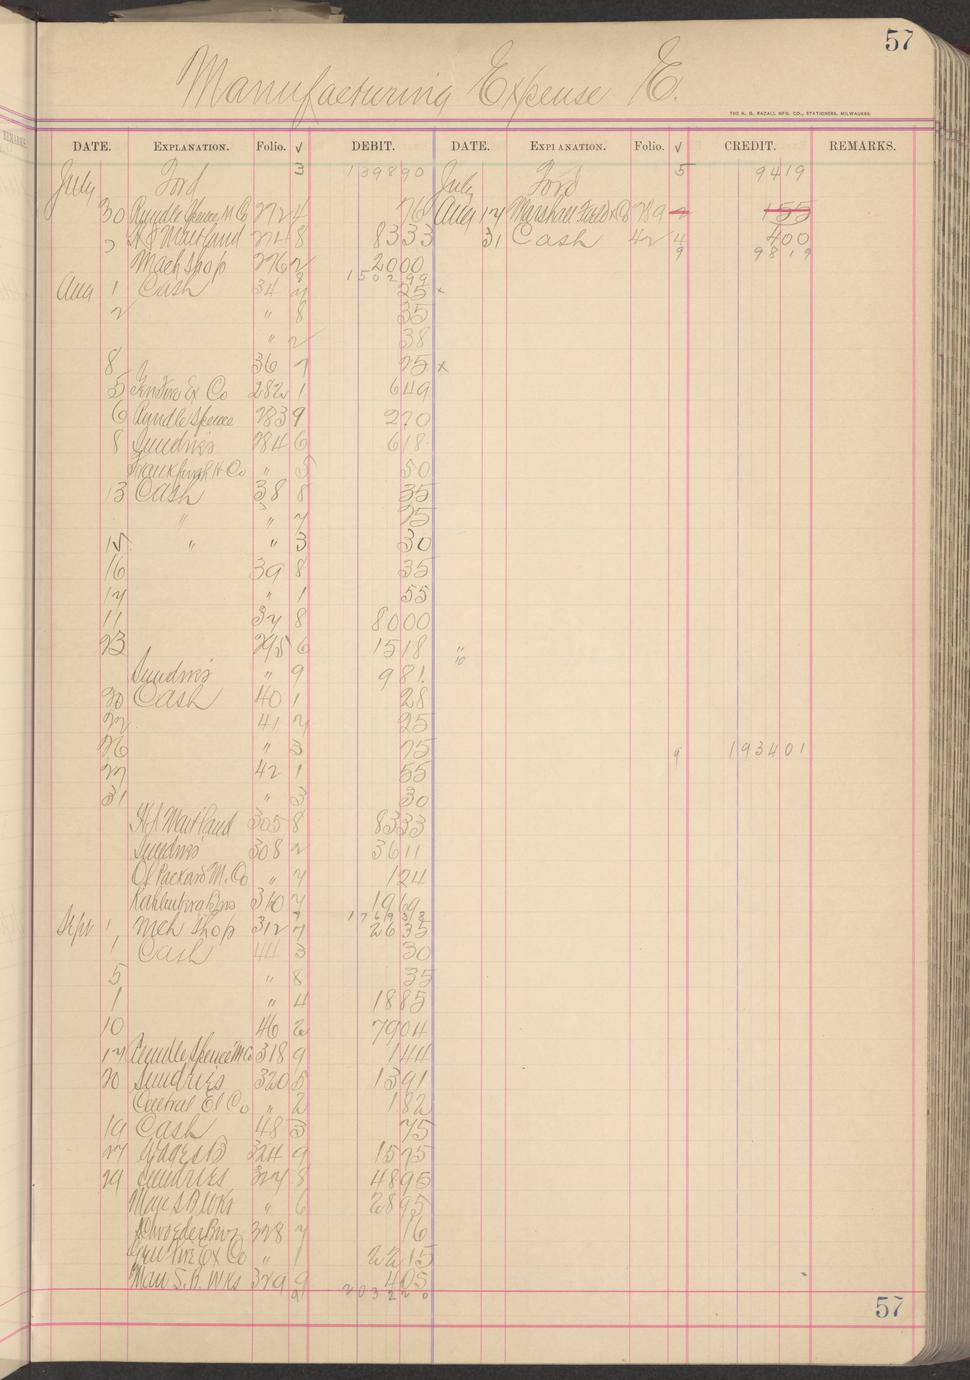 57
Manufacturing Expense E.
THE H. G. RAZALL MFG. CO., STATIONERS, MILWAUKEE.
DATE. EXPLANATION. Folio. √ DEBIT. DATE. EXPLANATION. Folio. √ CREDIT. REMARKS.
July Ford 3 1398 90 July Ford 5 94 19
30 Rundle Spence M Co 272 4 76 Aug 17 Marshall Field & Co 289 2 1 55
274 8 83 33 31 Cash 42 4 4 00
Mach Shop 276 2 20 00 9 98 19
1502 99
Aug 1 Cash 34 7 25 x
2 " 8 35
" 2 38
8 36 7 25 x
5 Ex Co 282 1 6 49
6 Rundle Spence 283 9 2 70
8 Sundries 284 6 6 18
" 5 50
13 Cash 38 8 35
" " 7 25
15 " " 3 30
16 39 8 35
17 " 1 55
11 37 8 80 00
23 295 6 15 18 "
Sundries " 9 9 81
20 Cash 40 1 28
22 41 7 25
26 " 3 75 9 1934 01
27 42 1 55
31 " 3 30
Maitland 305 8 83 33
Sundries 308 2 36 11
Packard M. Co " 7 1 24
Kahlenberg Bros 310 7 19 69
1769 33
Sept 1 Mach Shop 312 7 26 35
1 Cash 44 3 30
5 " 8 35
1 " 4 18 85
10 46 2 79 04
17 Rundle Spence M Co 318 9 1 44
20 Sundries 320 8 13 91
Central El Co " 2 1 82
19 Cash 48 3 75
27 Wages B 324 9 15 75
29 Sundries 327 8 48 95
" 6 28 95
Schroeder Bros 328 7 16
Ex Co " 1 22 15
S. B. Wks 329 9 4 05
2 2032 20
57